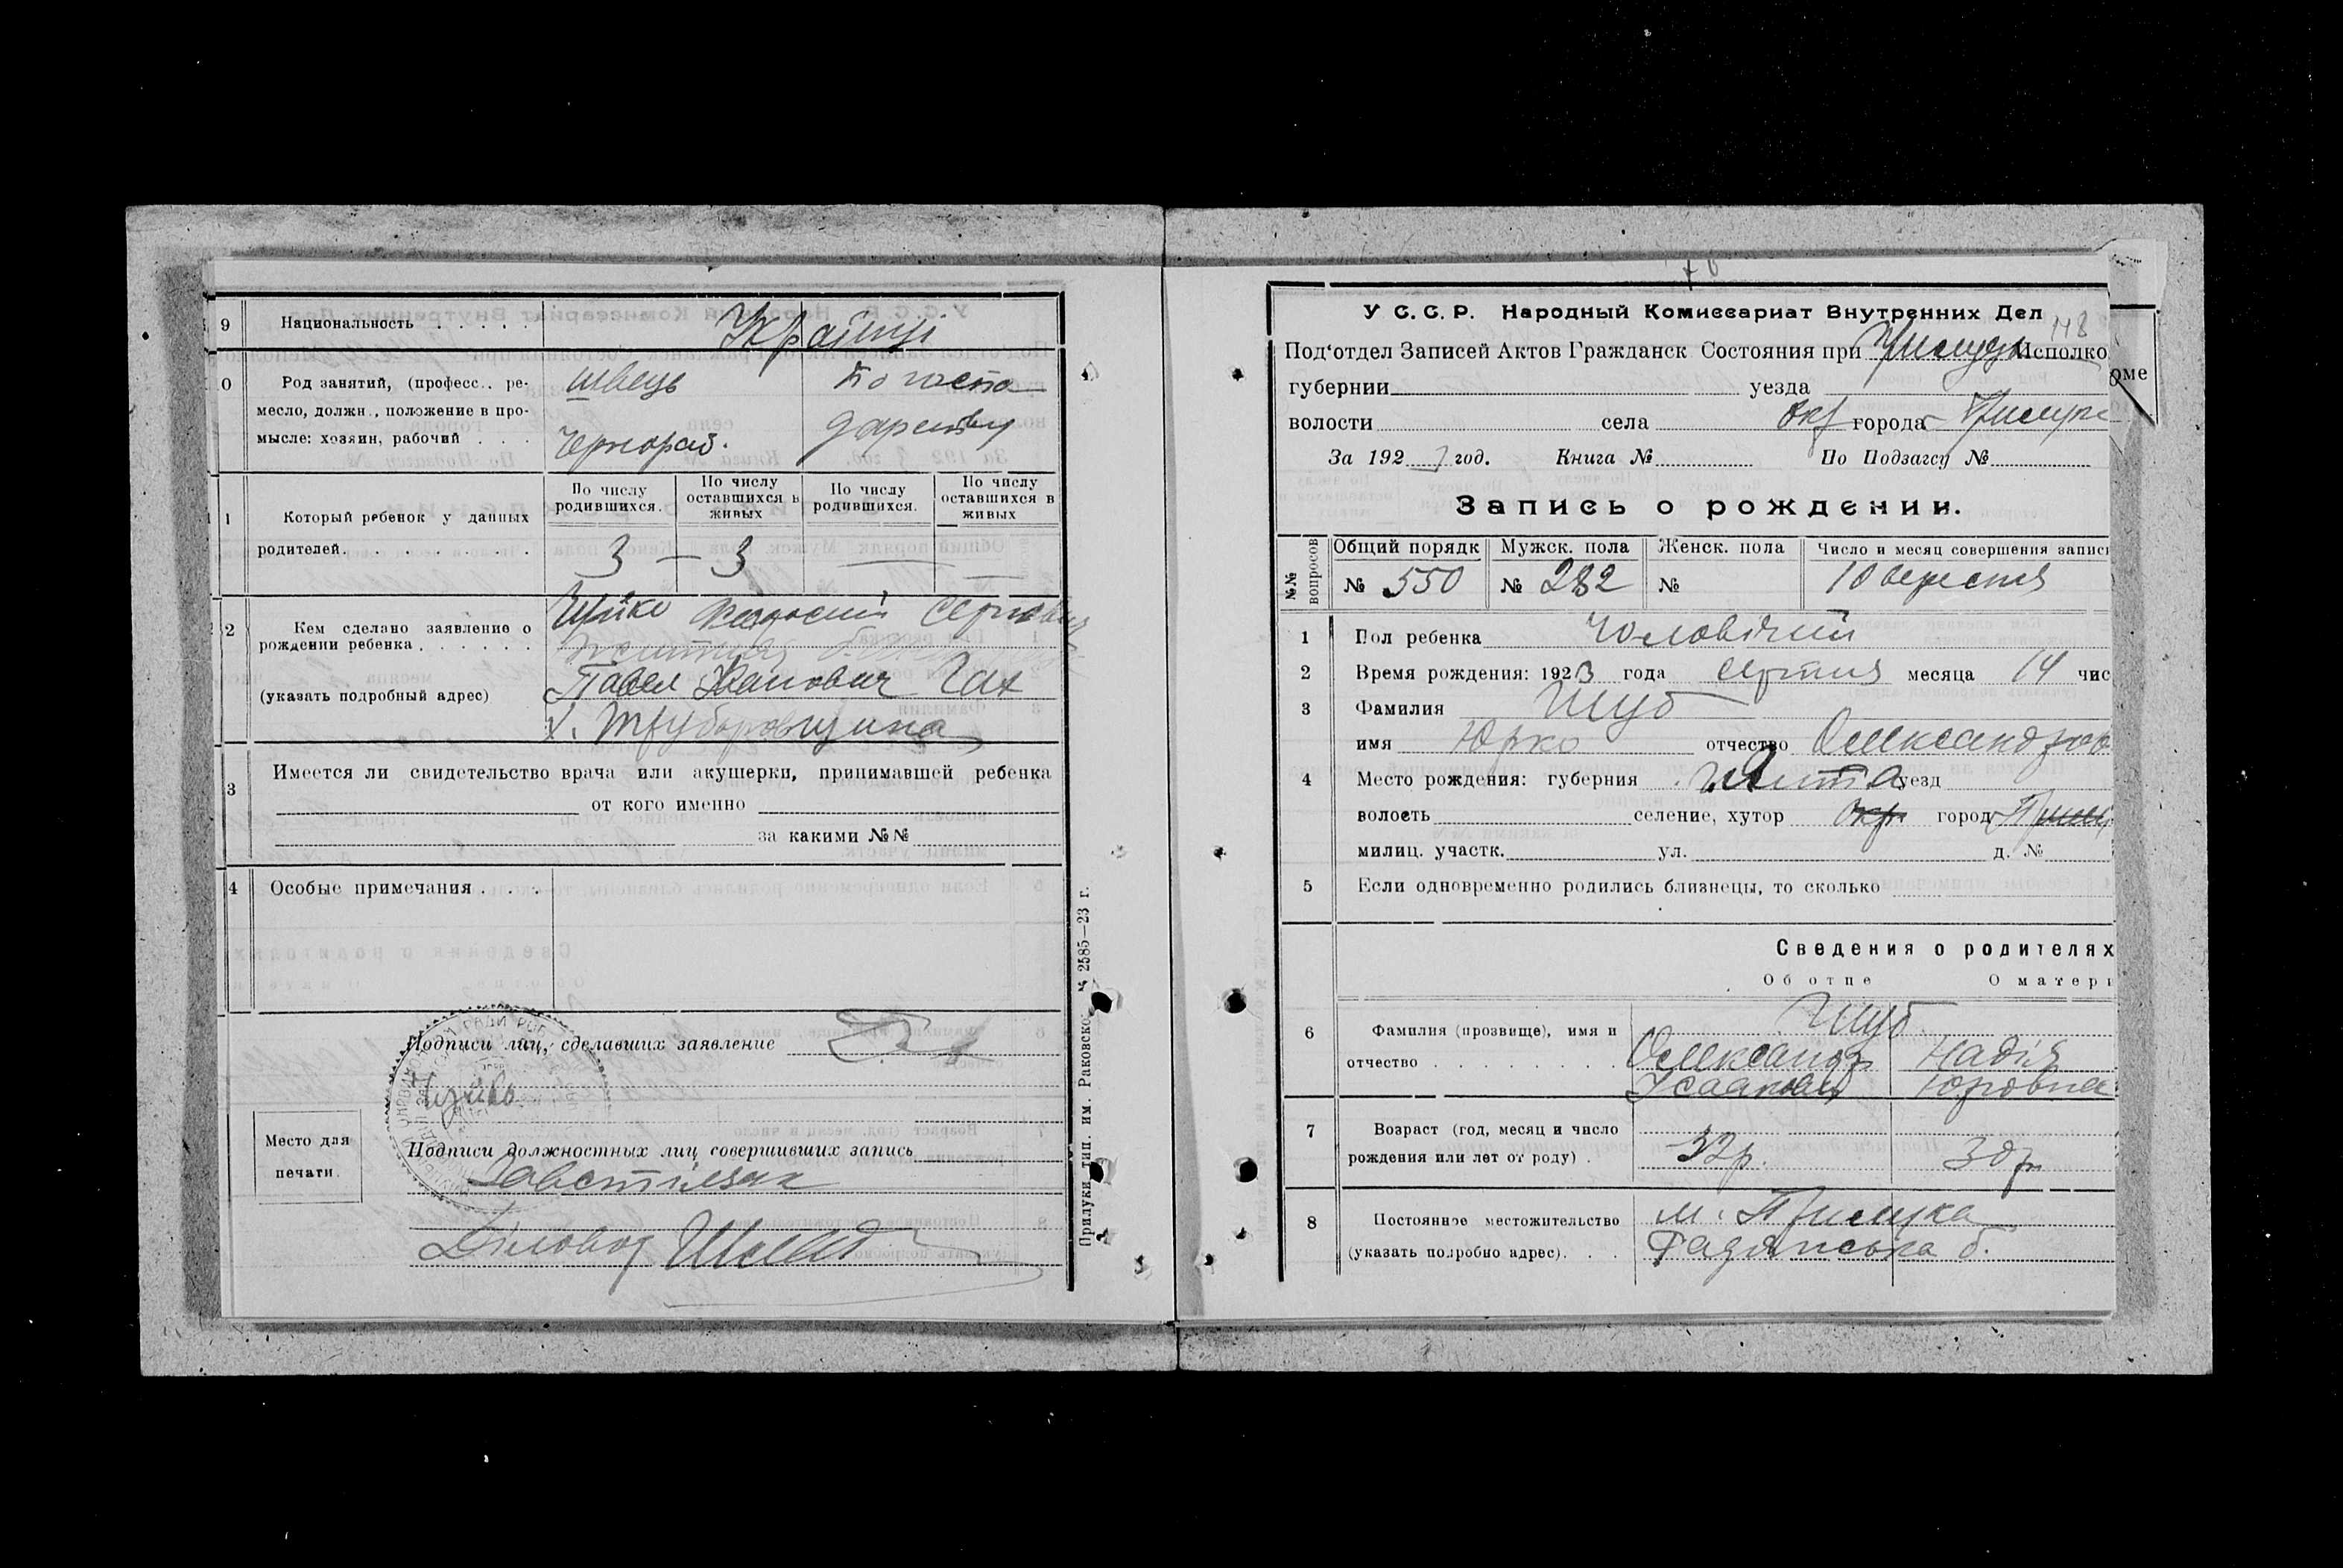 9 Национальность Українці
0 Род занятий, (професс., ре- швець По госпо
месло, должн., положение в про- дарству
мысле: хозяин, рабочий чернороб.
По числу родившихся. По числу оставшихся в живых По числу родившихся. По числу оставшихся в живых
1 Который ребенок у данных
родителей. 3 — 3 — —
2 Кем сделано заявление о
рождении ребенка
Павел Іванович Гах
(указать подробный адрес)
х. Трубаровщина
3 Имеется ли свидетельство врача или акушерки, принимавшей ребенка
от кого именно
за какими №№
4 Особые примечания
Подписи лиц, сделавших заявление
Место для
печати
Подписи должностных лиц совершивших запись
Завстолзак
Діловод
Прилуки тип. им. Раковско. № 2585—23 г.
У С. С. Р. Народный Комиссариат Внутренних Дел
118
Под'отдел Записей Актов Гражданск Состояния при Исполко
оме
губернии уезда
волости села Окр города Прилуки
За 192 3 год. Книга № По Подзагсу №
Запись о рождении.
№№ вопросов Общий порядк Мужск. пола Женск. пола Число и месяц совершения записи
№ 550 № 282 № 10 вересня
1 Пол ребенка Чоловічий
2 Время рождения: 1923 года серпня месяца 14 чис
3 Фамилия Шуб
имя Юрко отчество Олександров
4 Место рождения: губерния уезд
волость селение, хутор Окр. город Прилу
милиц. участк. ул. д. №
5 Если одновременно родились близнецы, то сколько
Сведения о родителях
Об отце О матери
6 Фамилия (прозвище), имя и Шуб
отчество Олександр Надія
Ісаакович Юровна
7 Возраст (год, месяц и число
рождения или лет от роду) 32р. 30р
8 Постоянное местожительство м. Прилука
(указать подробно адрес) Радянська б.